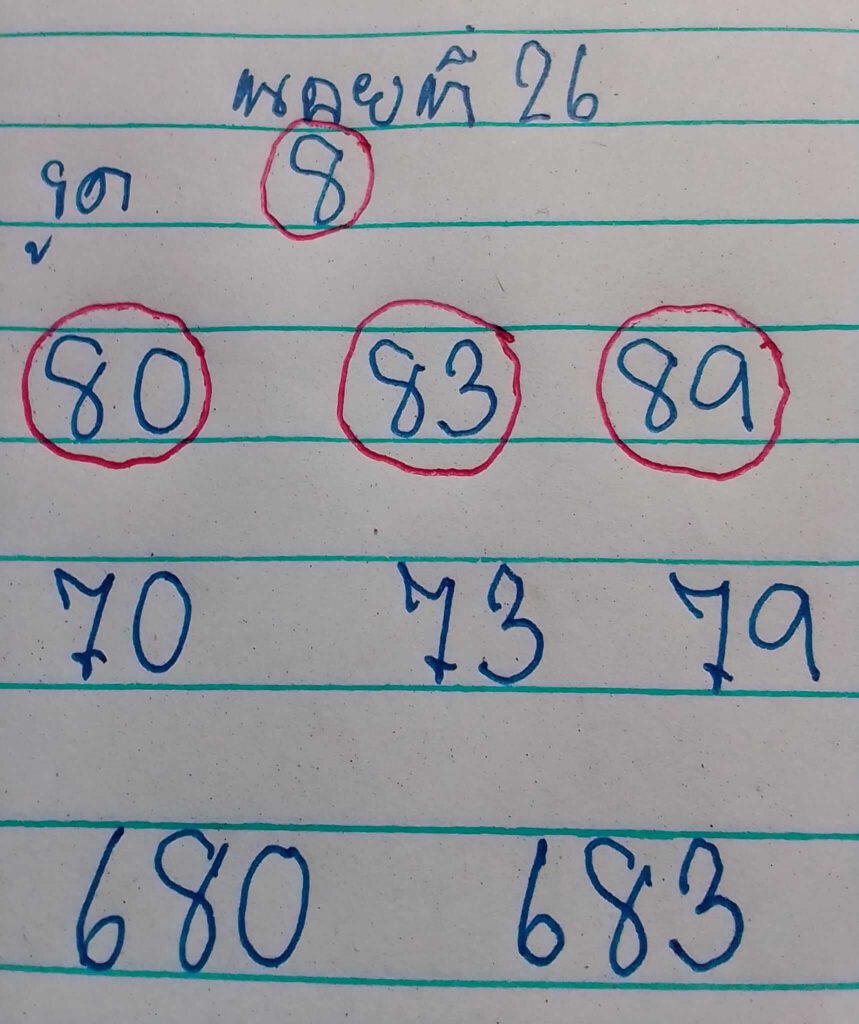 ที่ 26
รูด 8
80 83 89
70 73 79
680 683